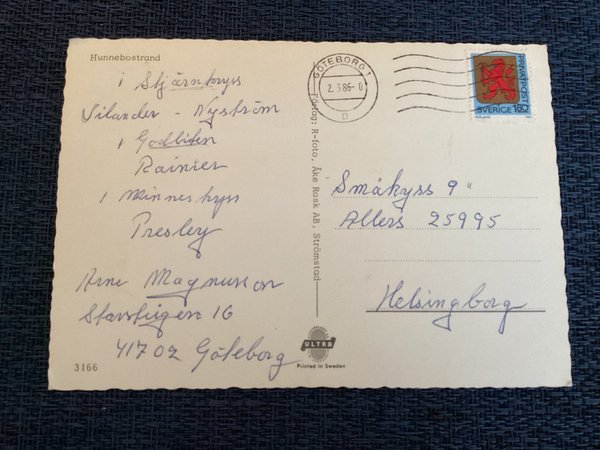 Hunnebostrand
i Stjärnkryss
Vilander - Nyström
i Godbiten
Rainier
i Minneskryss
Presley
Arne Magnusson
Stavstigen 16
41702 Göteborg
3166
Förlag: R-foto, Åke Rask AB, Strömstad
ULTRA
Printed in Sweden
GÖTEBORG 1
2.3.86-0
D
PRIVATPOST
SVERIGE 180
Småkryss 9"
Allers 25995
Helsingborg